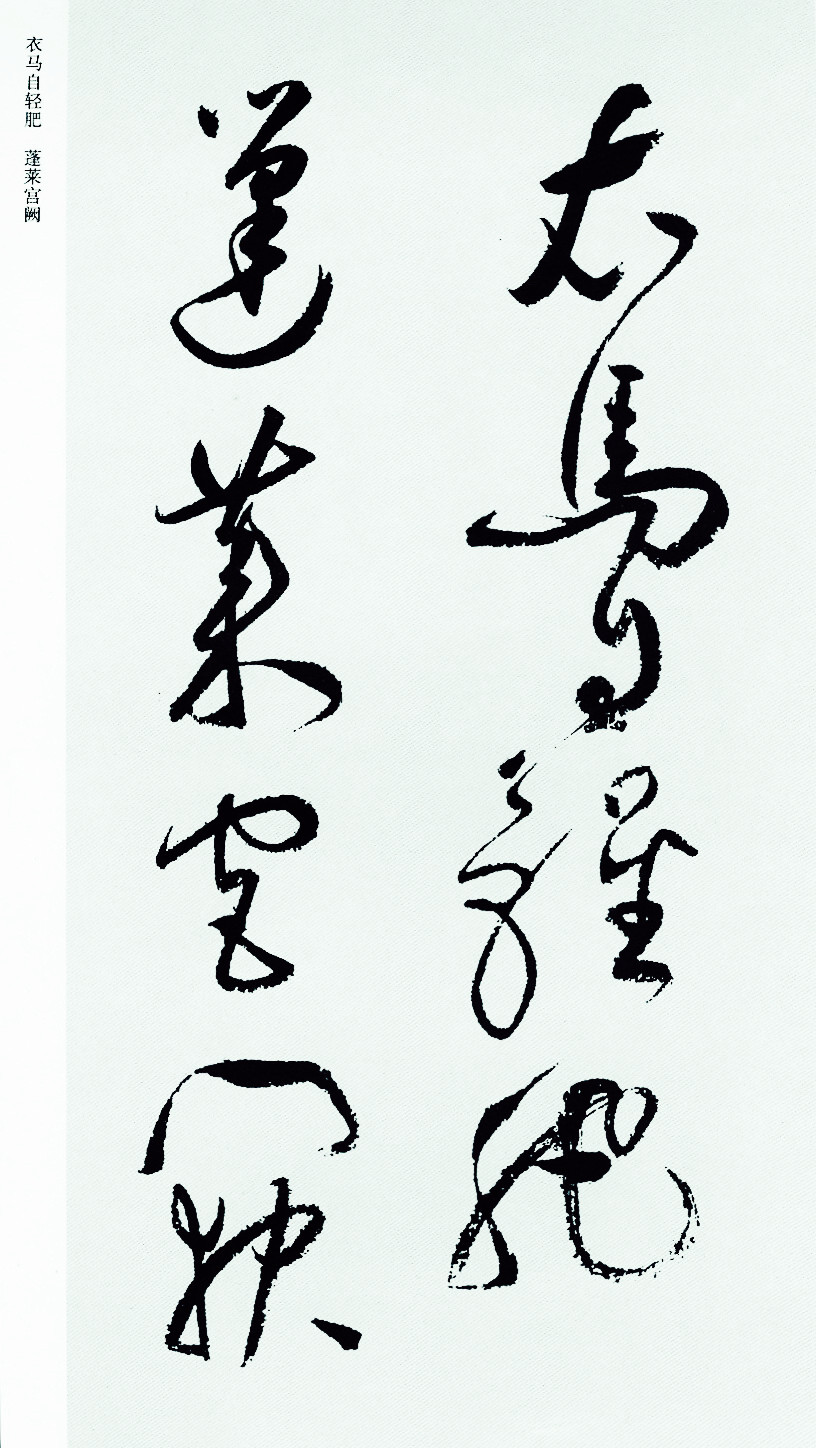 衣馬自輕肥
蓬萊宮闕
衣马自轻肥 蓬莱宫阙